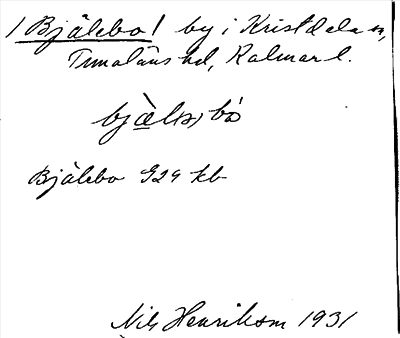 /Bjälebo/ by i Kristdala sn,
Tunaläns hd, Kalmar l.
bjæ̀l bo
Bjälebo 929 kb
Nils Henrikson 1931